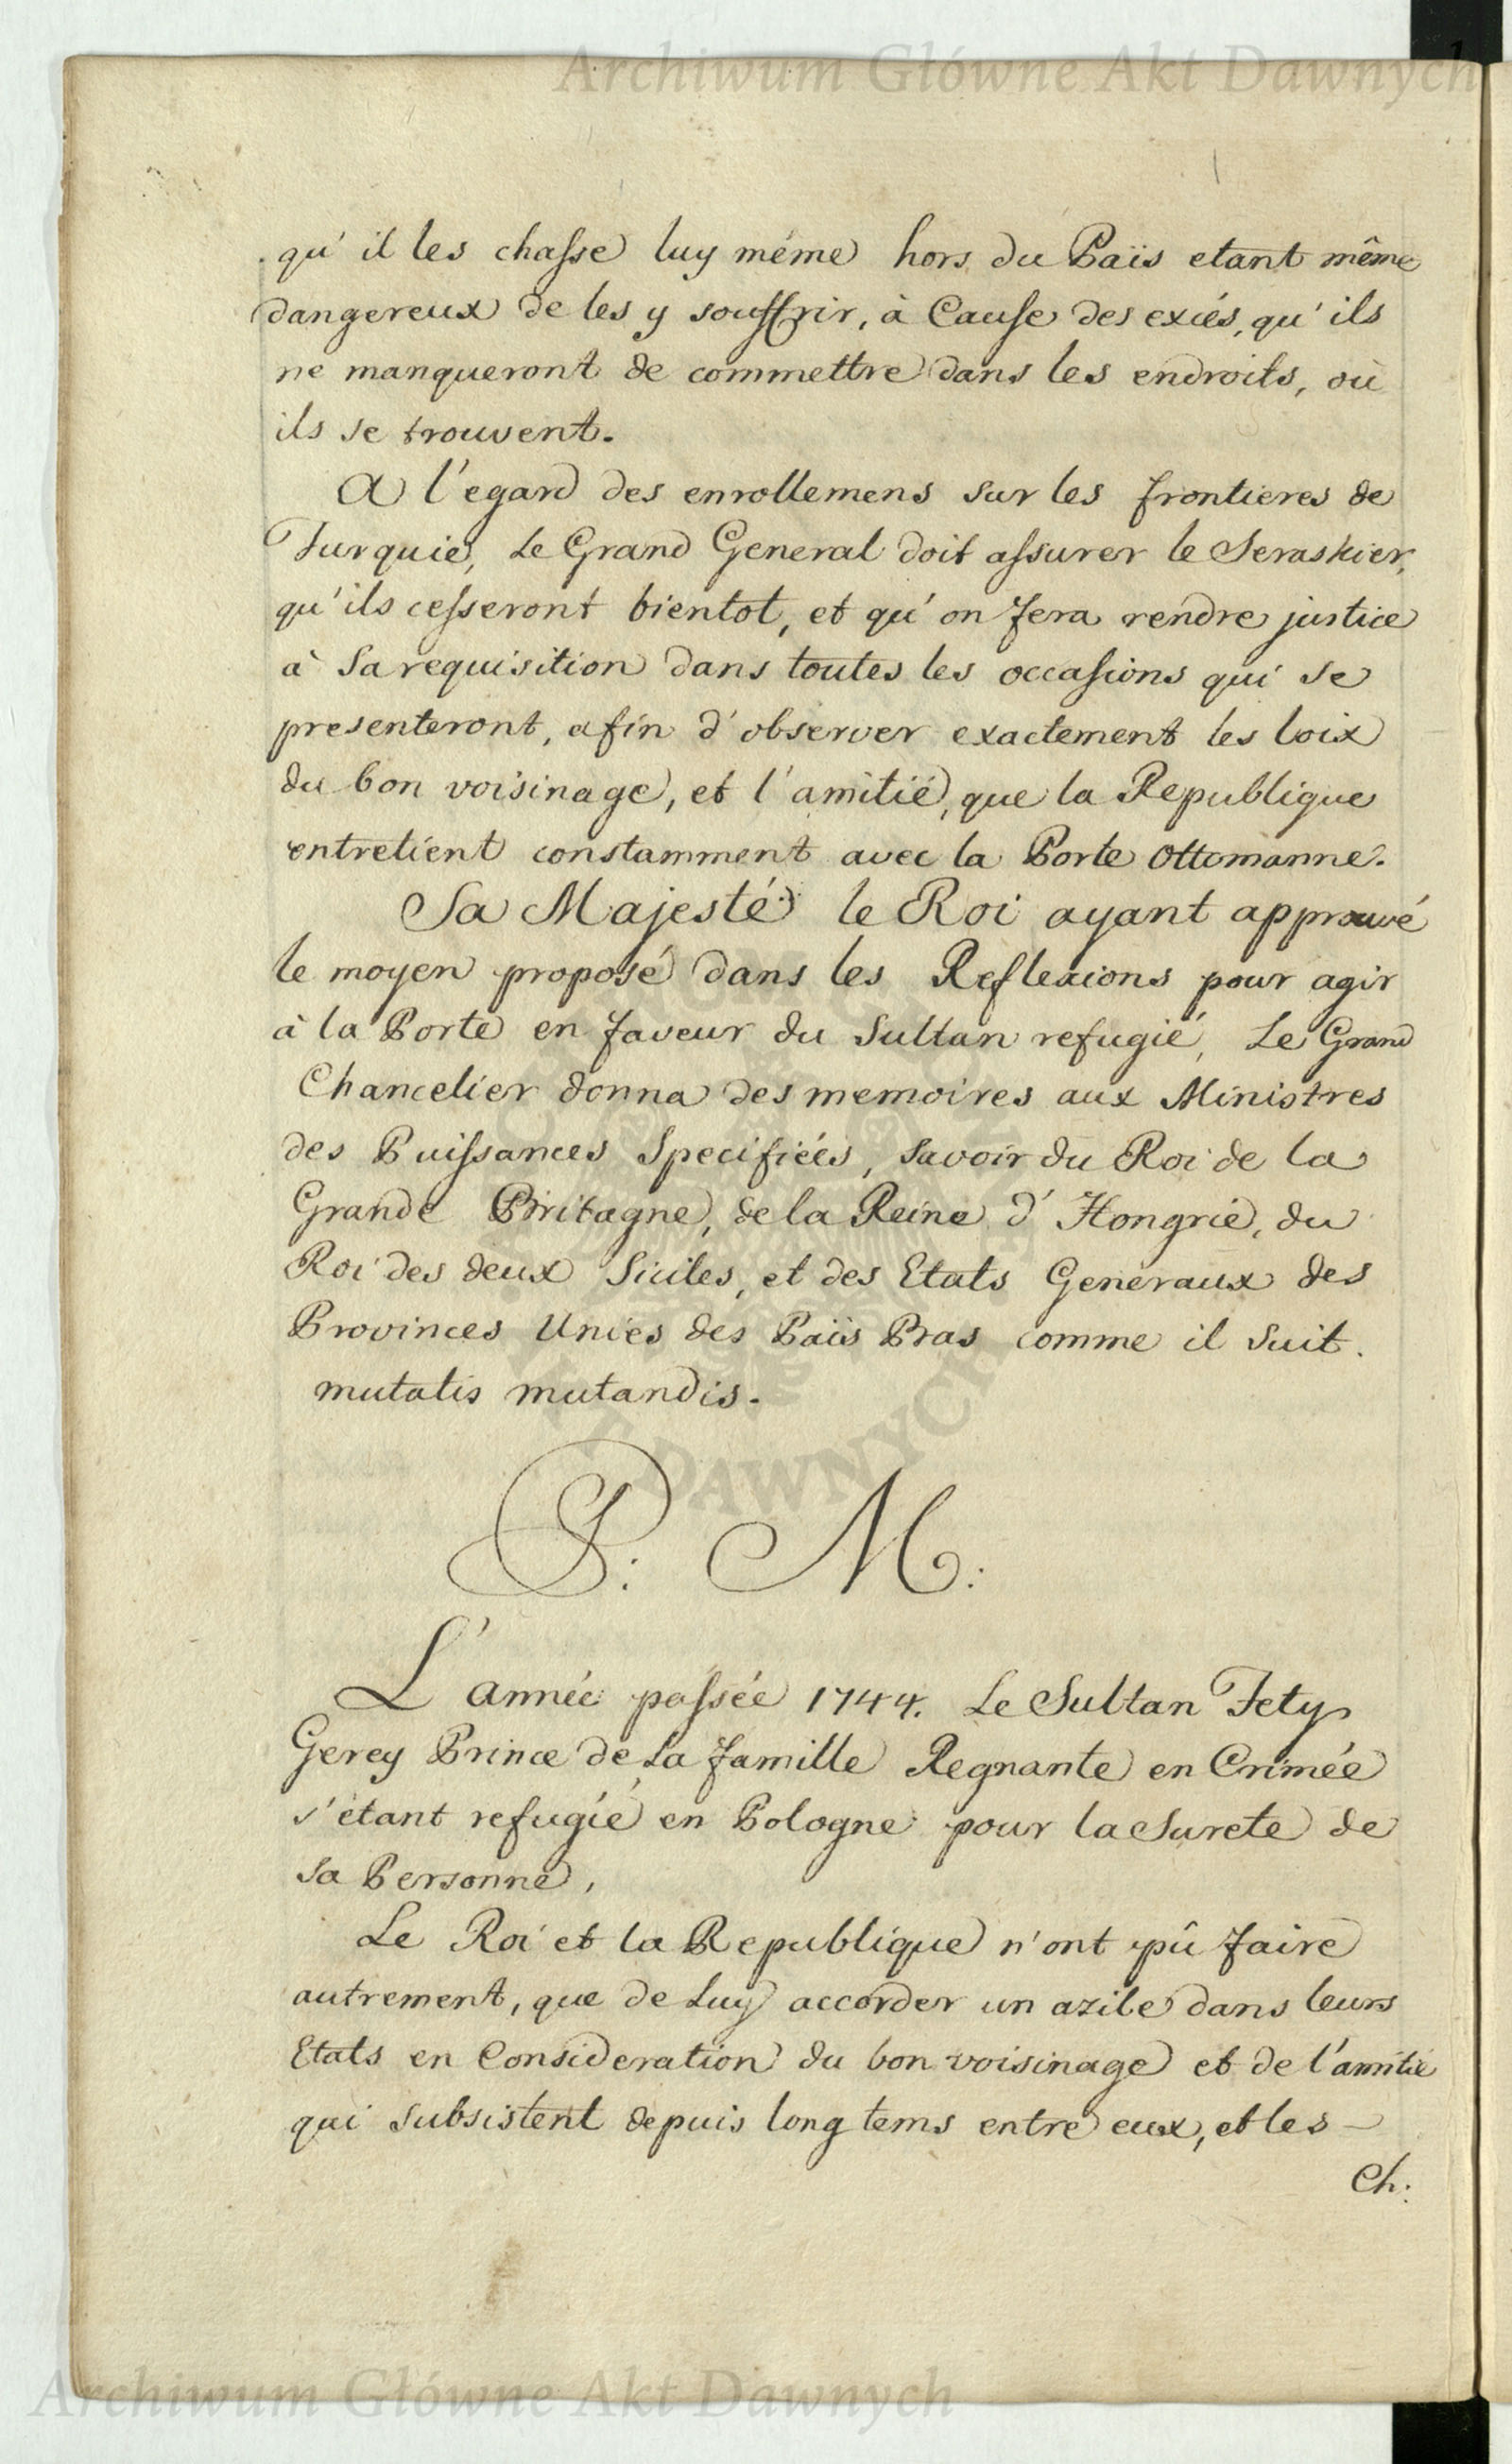 Archiwum Główne Akt Dawnych
qu'il les chasse luy même hors du Païs etant même
dangereux de les y souffrir, à Cause des excés, qu'ils
ne manqueront de commettre dans les endroits, où
ils se trouvent.
A l'egard des enrollemens sur les frontieres de
Turquie, Le Grand General doit assurer le Seraskier,
qu'ils cesseront bientot, et qu'on fera rendre justice
à Sa requisition dans toutes les occasions qui se
presenteront, afin d'observer exactement les loix
du bon voisinage, et l'amitié, que la Republique
entretient constamment avec la Porte Ottomanne.
Sa Majesté le Roi ayant approuvé
le moyen proposé dans les Reflexions pour agir
à la Porte en faveur du Sultan refugié, Le Grand
Chancelier donna des memoires aux Ministres
des Puissances Specifiées, Savoir du Roi de la
Grande Britagne, de la Reine d'Hongrie, du
Roi des deux Siciles, et des Etats Generaux des
Provinces Unies des Païs Bas comme il Suit.
mutatis mutandis.
P: M:
L'année passée 1744. Le Sultan Fety
Gerey Prince de La famille Regnante en Crimée
s'étant refugié en Pologne pour la Surete de
Sa Personne,
Le Roi et la Republique n'ont pû faire
autrement, que de Luy accorder un azile dans leurs
Etats en Consideration du bon voisinage et de l'amitié
qui Subsistent depuis long tems entre eux, et les -
Ch:
DAWNYCH
Archiwum Główne Akt Dawnych